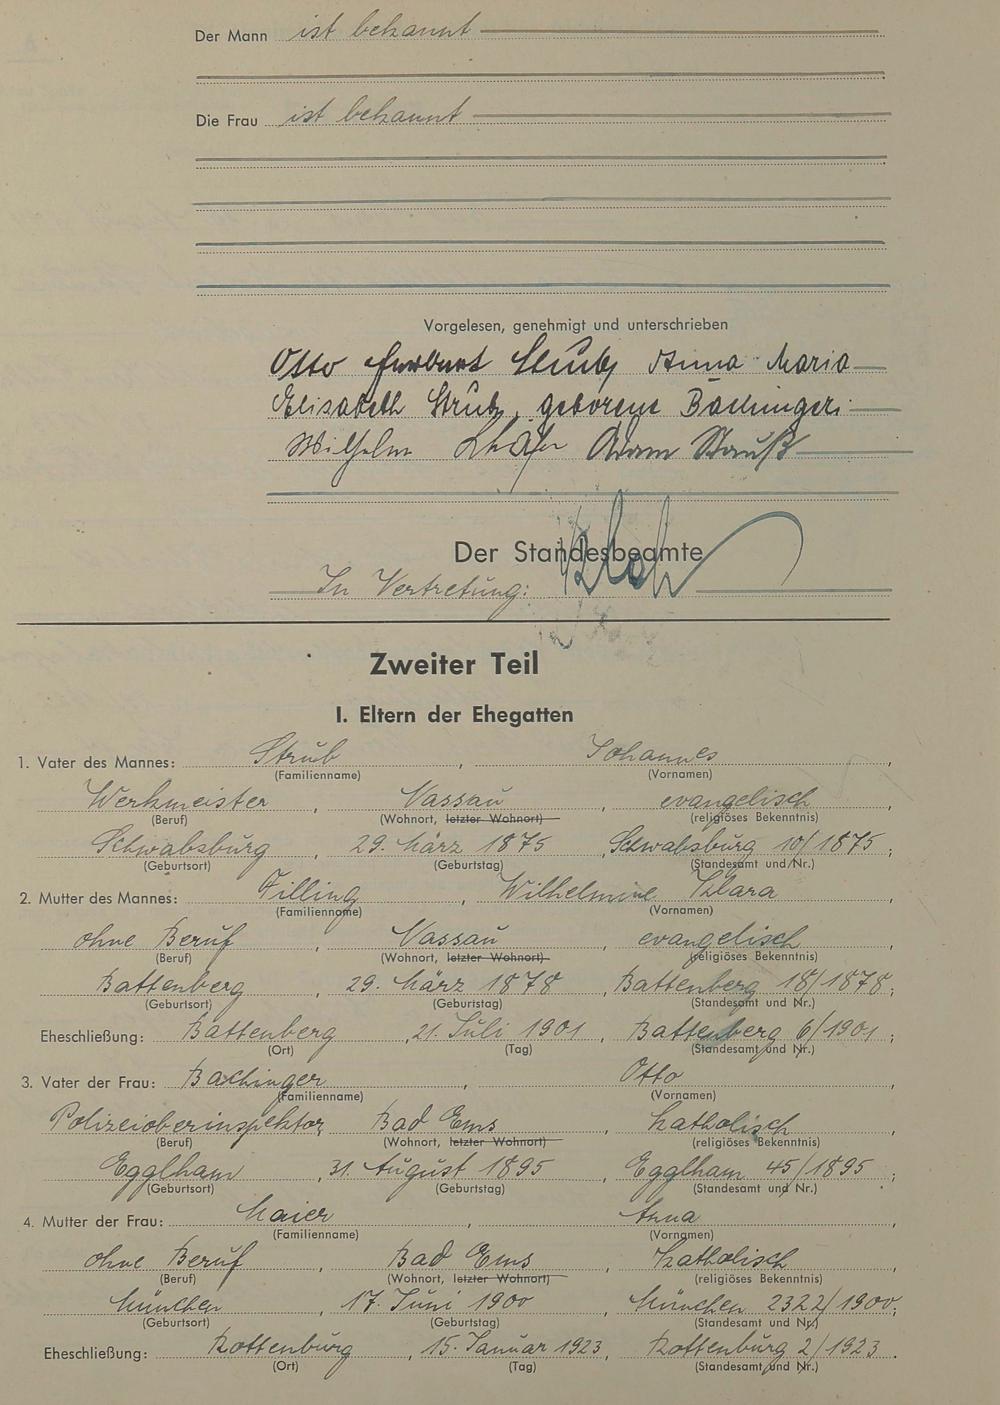 Der Mann ist bekannt
Die Frau ist bekannt
Vorgelesen, genehmigt und unterschrieben
Otto Strub Anna Maria
Elisabeth Strub, geborene Bachinger
Wilhelm Adam Strauß
Der Standesbeamte
In Vertretung:
Zweiter Teil
I. Eltern der Ehegatten
1. Vater des Mannes: Strub, Johannes,
(Familienname) (Vornamen)
Werkmeister, Nassau, evangelisch,
(Beruf) (Wohnort, letzter Wohnort) (religiöses Bekenntnis)
Schwabsburg, 29. März 1875, Schwabsburg 10/1875;
(Geburtsort) (Geburtstag) (Standesamt und Nr.)
2. Mutter des Mannes: Filling, Wilhelmine Klara,
(Familienname) (Vornamen)
ohne Beruf, Nassau, evangelisch,
(Beruf) (Wohnort, letzter Wohnort) (religiöses Bekenntnis)
Battenberg, 29. März 1878, Battenberg 18/1878;
(Geburtsort) (Geburtstag) (Standesamt und Nr.)
Eheschließung: Battenberg, 21. Juli 1901, Battenberg 6/1901;
(Ort) (Tag) (Standesamt und Nr.)
3. Vater der Frau: Bachinger, Otto,
(Familienname) (Vornamen)
Polizeioberinspektor, Bad Ems, katholisch,
(Beruf) (Wohnort, letzter Wohnort) (religiöses Bekenntnis)
Egglham, 31. August 1895, Egglham 45/1895;
(Geburtsort) (Geburtstag) (Standesamt und Nr.)
4. Mutter der Frau: Maier, Anna,
(Familienname) (Vornamen)
ohne Beruf, Bad Ems, katholisch,
(Beruf) (Wohnort, letzter Wohnort) (religiöses Bekenntnis)
München, 17. Juni 1900, München 2322/1900;
(Geburtsort) (Geburtstag) (Standesamt und Nr.)
Eheschließung: Rottenburg, 15. Januar 1923, Rottenburg 2/1923.
(Ort) (Tag) (Standesamt und Nr.)